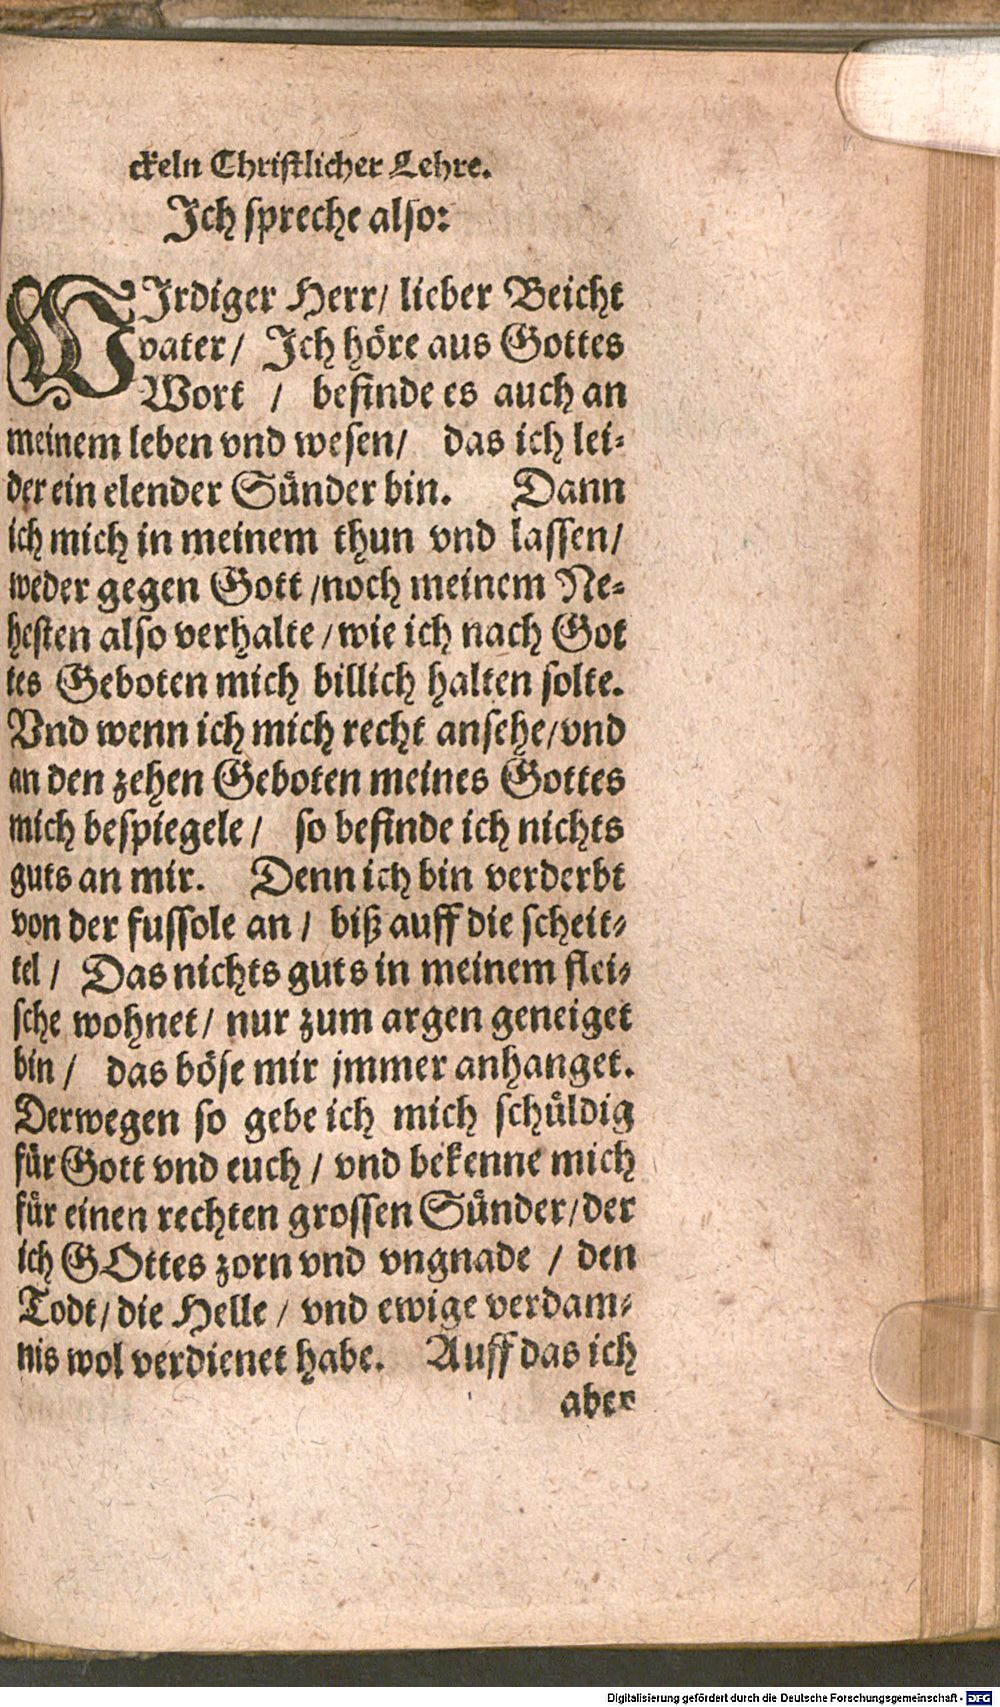 ckeln Christlicher Lehre.
Ich spreche also:
WIrdiger Herr/ lieber Beicht
vater/ Ich höre aus Gottes
Wort / befinde es auch an
meinem leben vnd wesen/ das ich lei-
der ein elender Sünder bin. Dann
ich mich in meinem thun vnd lassen/
weder gegen Gott /noch meinem Ne-
hesten also verhalte /wie ich nach Got
tes Geboten mich billich halten solte.
Vnd wenn ich mich recht ansehe/vnd
an den zehen Geboten meines Gottes
mich bespiegele / so befinde ich nichts
guts an mir. Denn ich bin verderbt
von der fussole an / biß auff die scheit-
tel / Das nichts guts in meinem flei-
sche wohnet/ nur zum argen geneiget
bin / das böse mir jmmer anhanget.
Derwegen so gebe ich mich schüldig
für Gott vnd euch / vnd bekenne mich
für einen rechten grossen Sünder/der
ich GOttes zorn vnd vngnade / den
Todt/die Helle / vnd ewige verdam-
nis wol verdienet habe. Auff das ich
aber
Digitalisierung gefördert durch die Deutsche Forschungsgemeinschaft - DFG